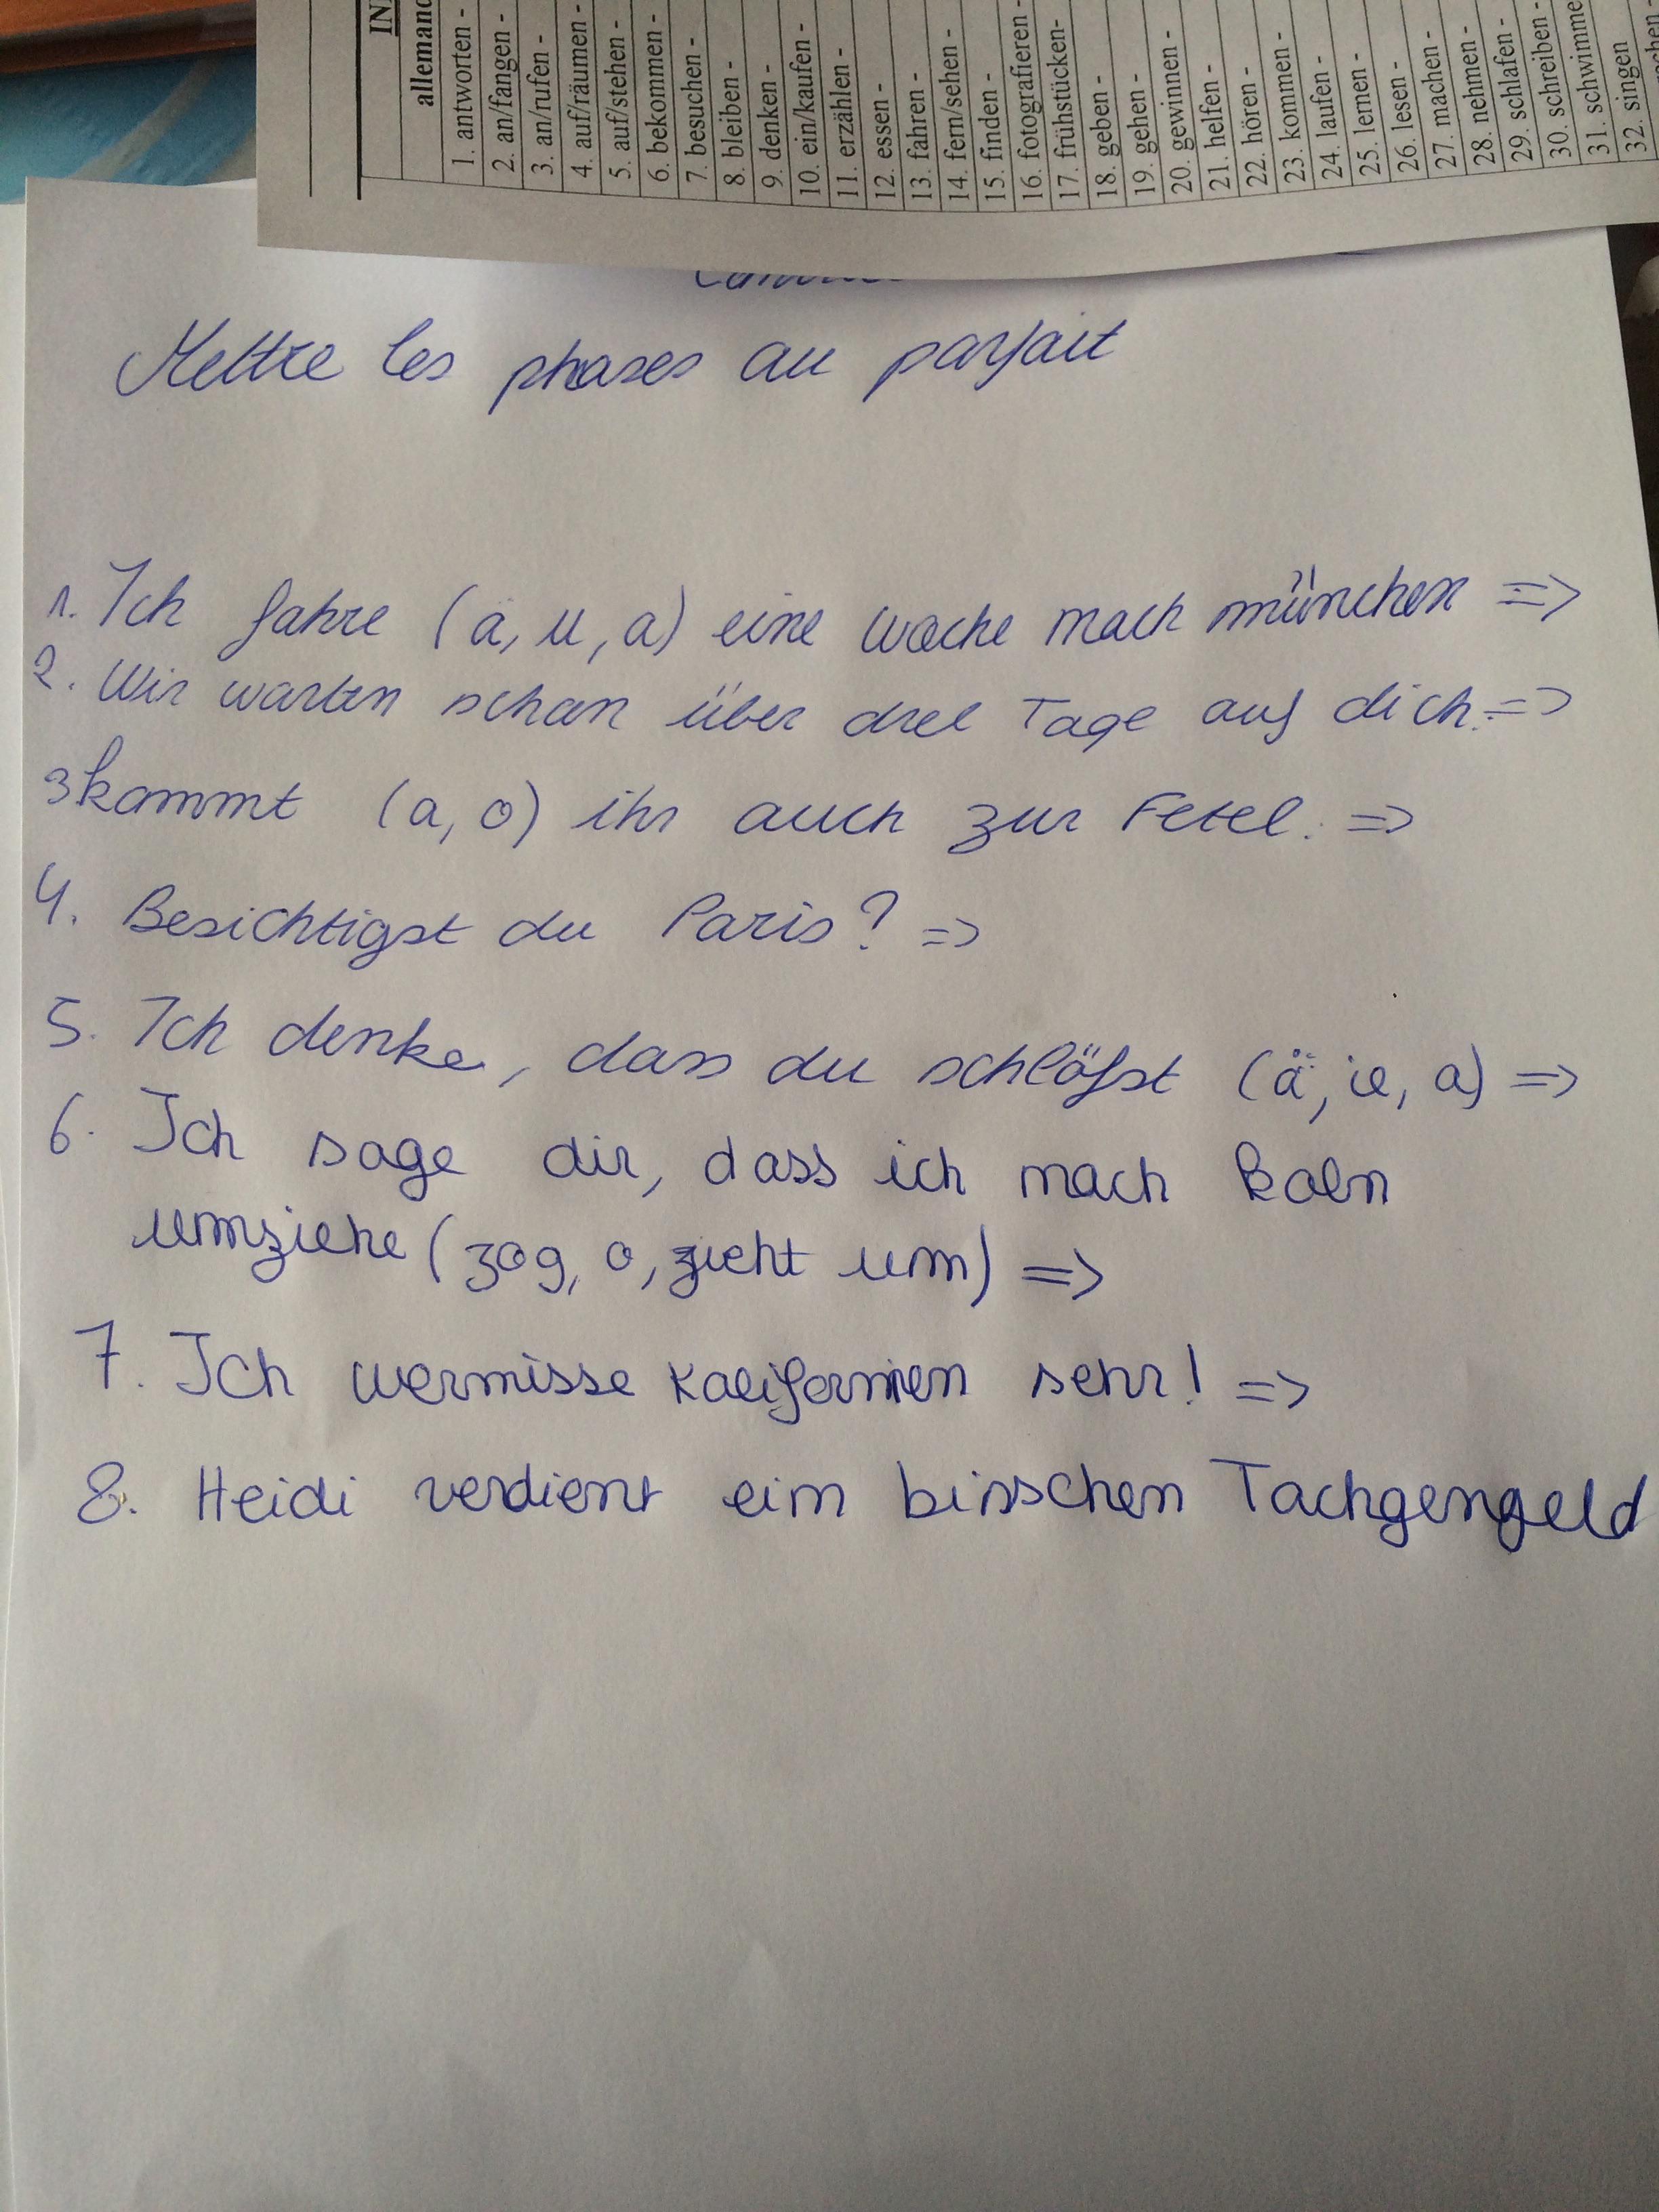 IN
allemand
1. antworten -
2. an/fangen -
3. an/rufen -
4. auf/räumen -
5. auf/stehen -
6. bekommen -
7. besuchen -
8. bleiben -
9. denken -
10. ein/kaufen -
11. erzählen -
12. essen -
13. fahren -
14. fern/sehen -
15. finden -
16. fotografieren -
17. frühstücken-
18. geben -
19. gehen -
20. gewinnen -
21. helfen -
22. hören -
23. kommen -
24. laufen -
25. lernen -
26. lesen -
27. machen -
28. nehmen -
29. schlafen -
30. schreiben -
31. schwimme
32. singen
Mettre les phases au parfait
1. Ich fahre (a, u, a) eine woche mach münchen =>
2. Wir warten schan über drei Tage auf dich. =>
3 kammt (a, o) ihr auch zur Fetel. =>
4. Besichtigst du Paris? =>
5. Ich denke, dass du schläfst (ä, ie, a) =>
6. Ich sage dir, dass ich mach kaln
umziehe (zog, o, zieht um) =>
7. Ich wermisse kalifornien sehr! =>
8. Heidi verdient eim bisschen Tachgengeld